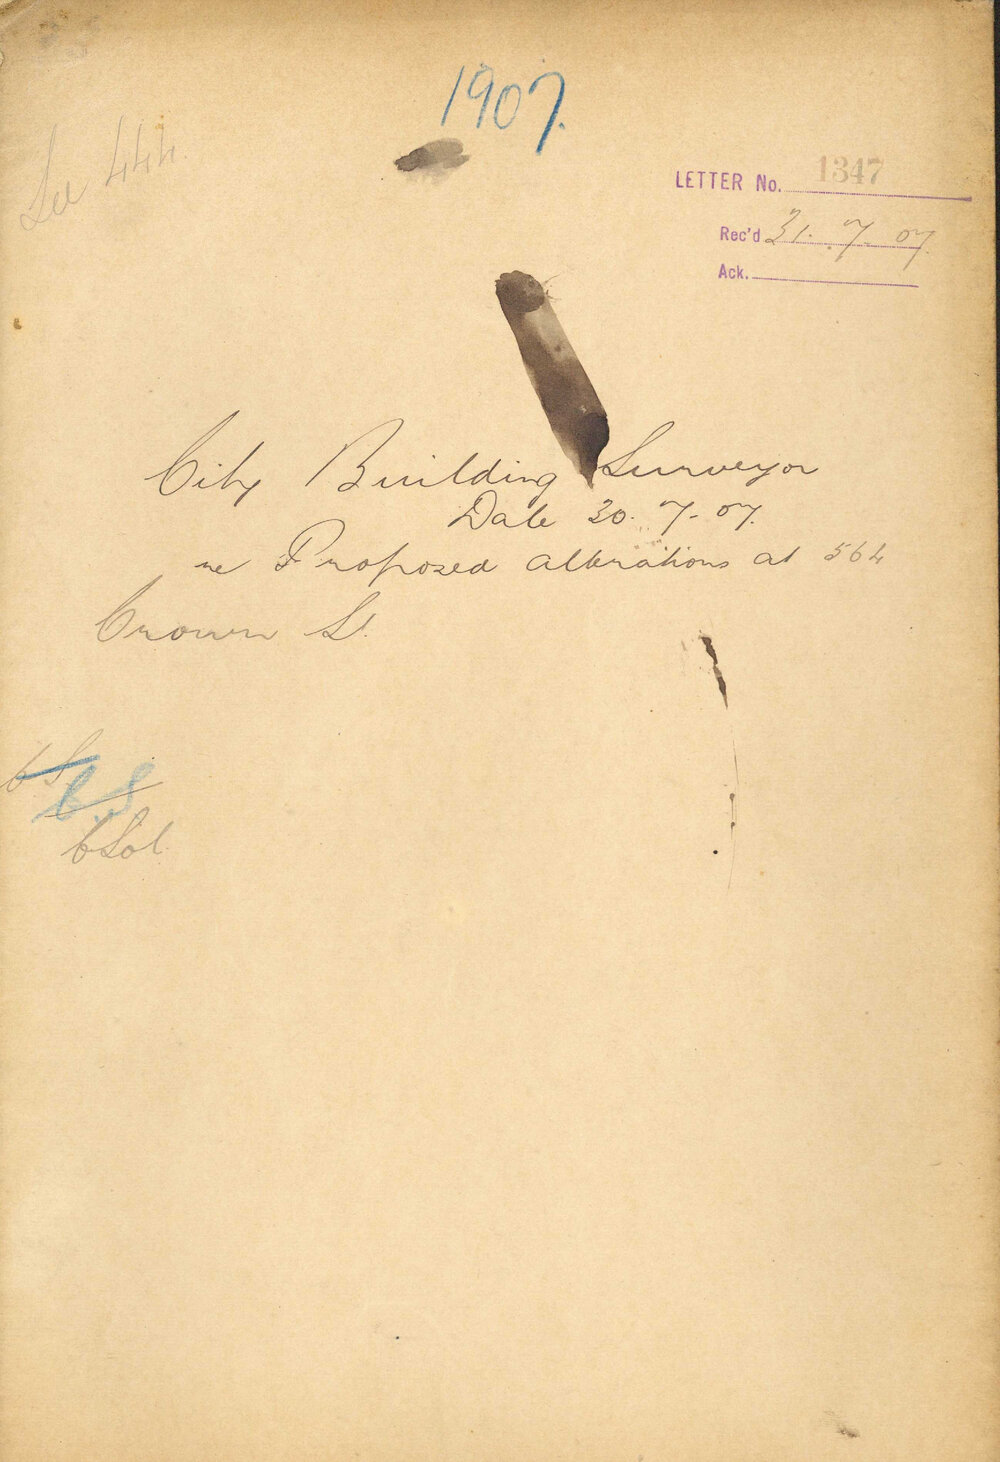 1907.
See 444.
LETTER No. 1347
Rec'd 31. 7. 07.
Ack.
City Building Surveyor
Date 30. 7. 07.
re Proposed alterations at 564
Crown St.
C.S.
C.S
C Sol